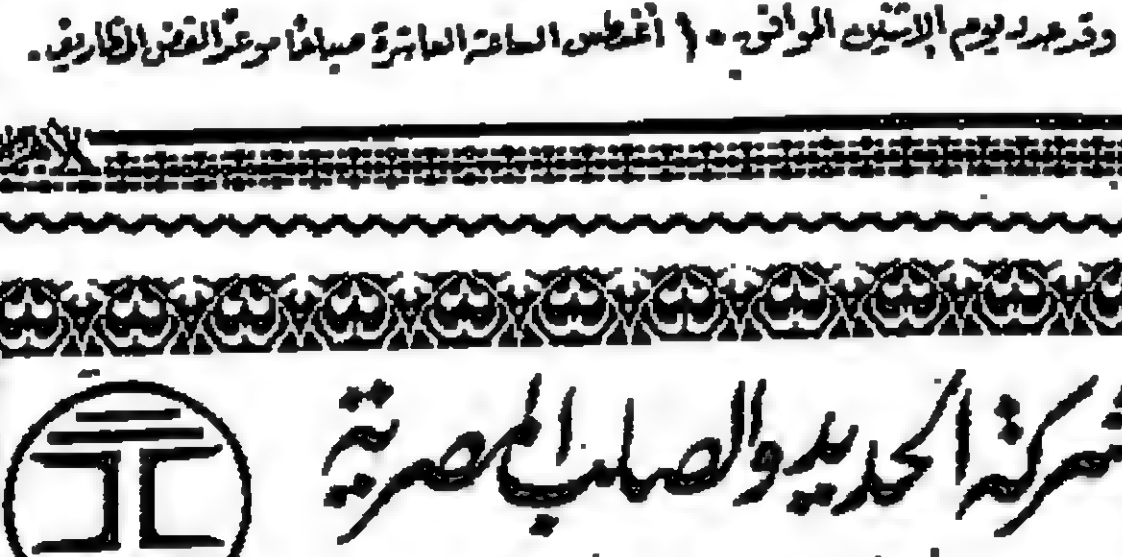 وقد حدد يوم الإثنين الموافق ١٠ أغسطس الساعة العاشرة صباحًا موعدًا لفض المظاريف.
شركة الحديد والصلب المصرية